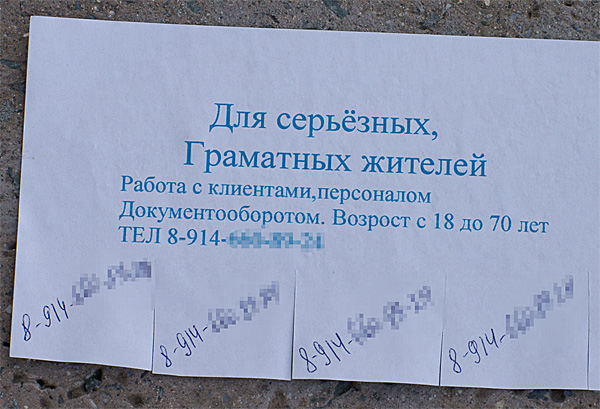 Для серьёзных,
Граматных жителей
Работа с клиентами,персоналом
Документооборотом. Возрост с 18 до 70 лет
ТЕЛ 8-914-
8-914-
8-914-
8-914-
8-914-